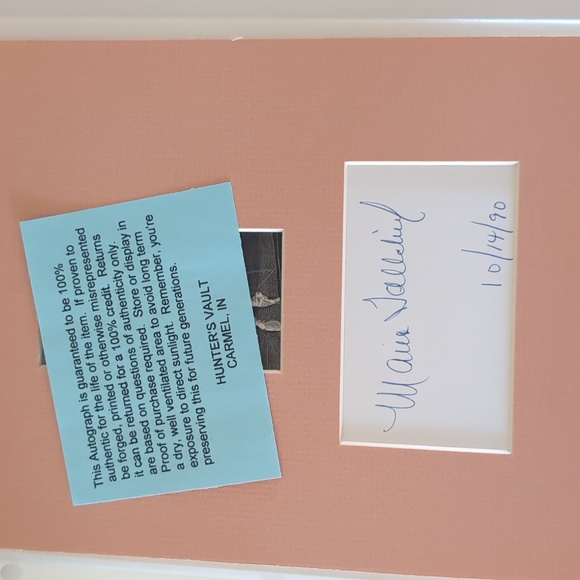 This Autograph is guaranteed to be 100%
authentic for the life of the item. If proven to
be forged, printed or otherwise misrepresented
it can be returned for a 100% credit. Returns
are based on questions of authenticity only.
Proof of purchase required. Store or display in
a dry, well ventilated area to avoid long term
exposure to direct sunlight. Remember, you're
preserving this for future generations.
HUNTER'S VAULT
CARMEL, IN
Maria Tallchief
10/14/90